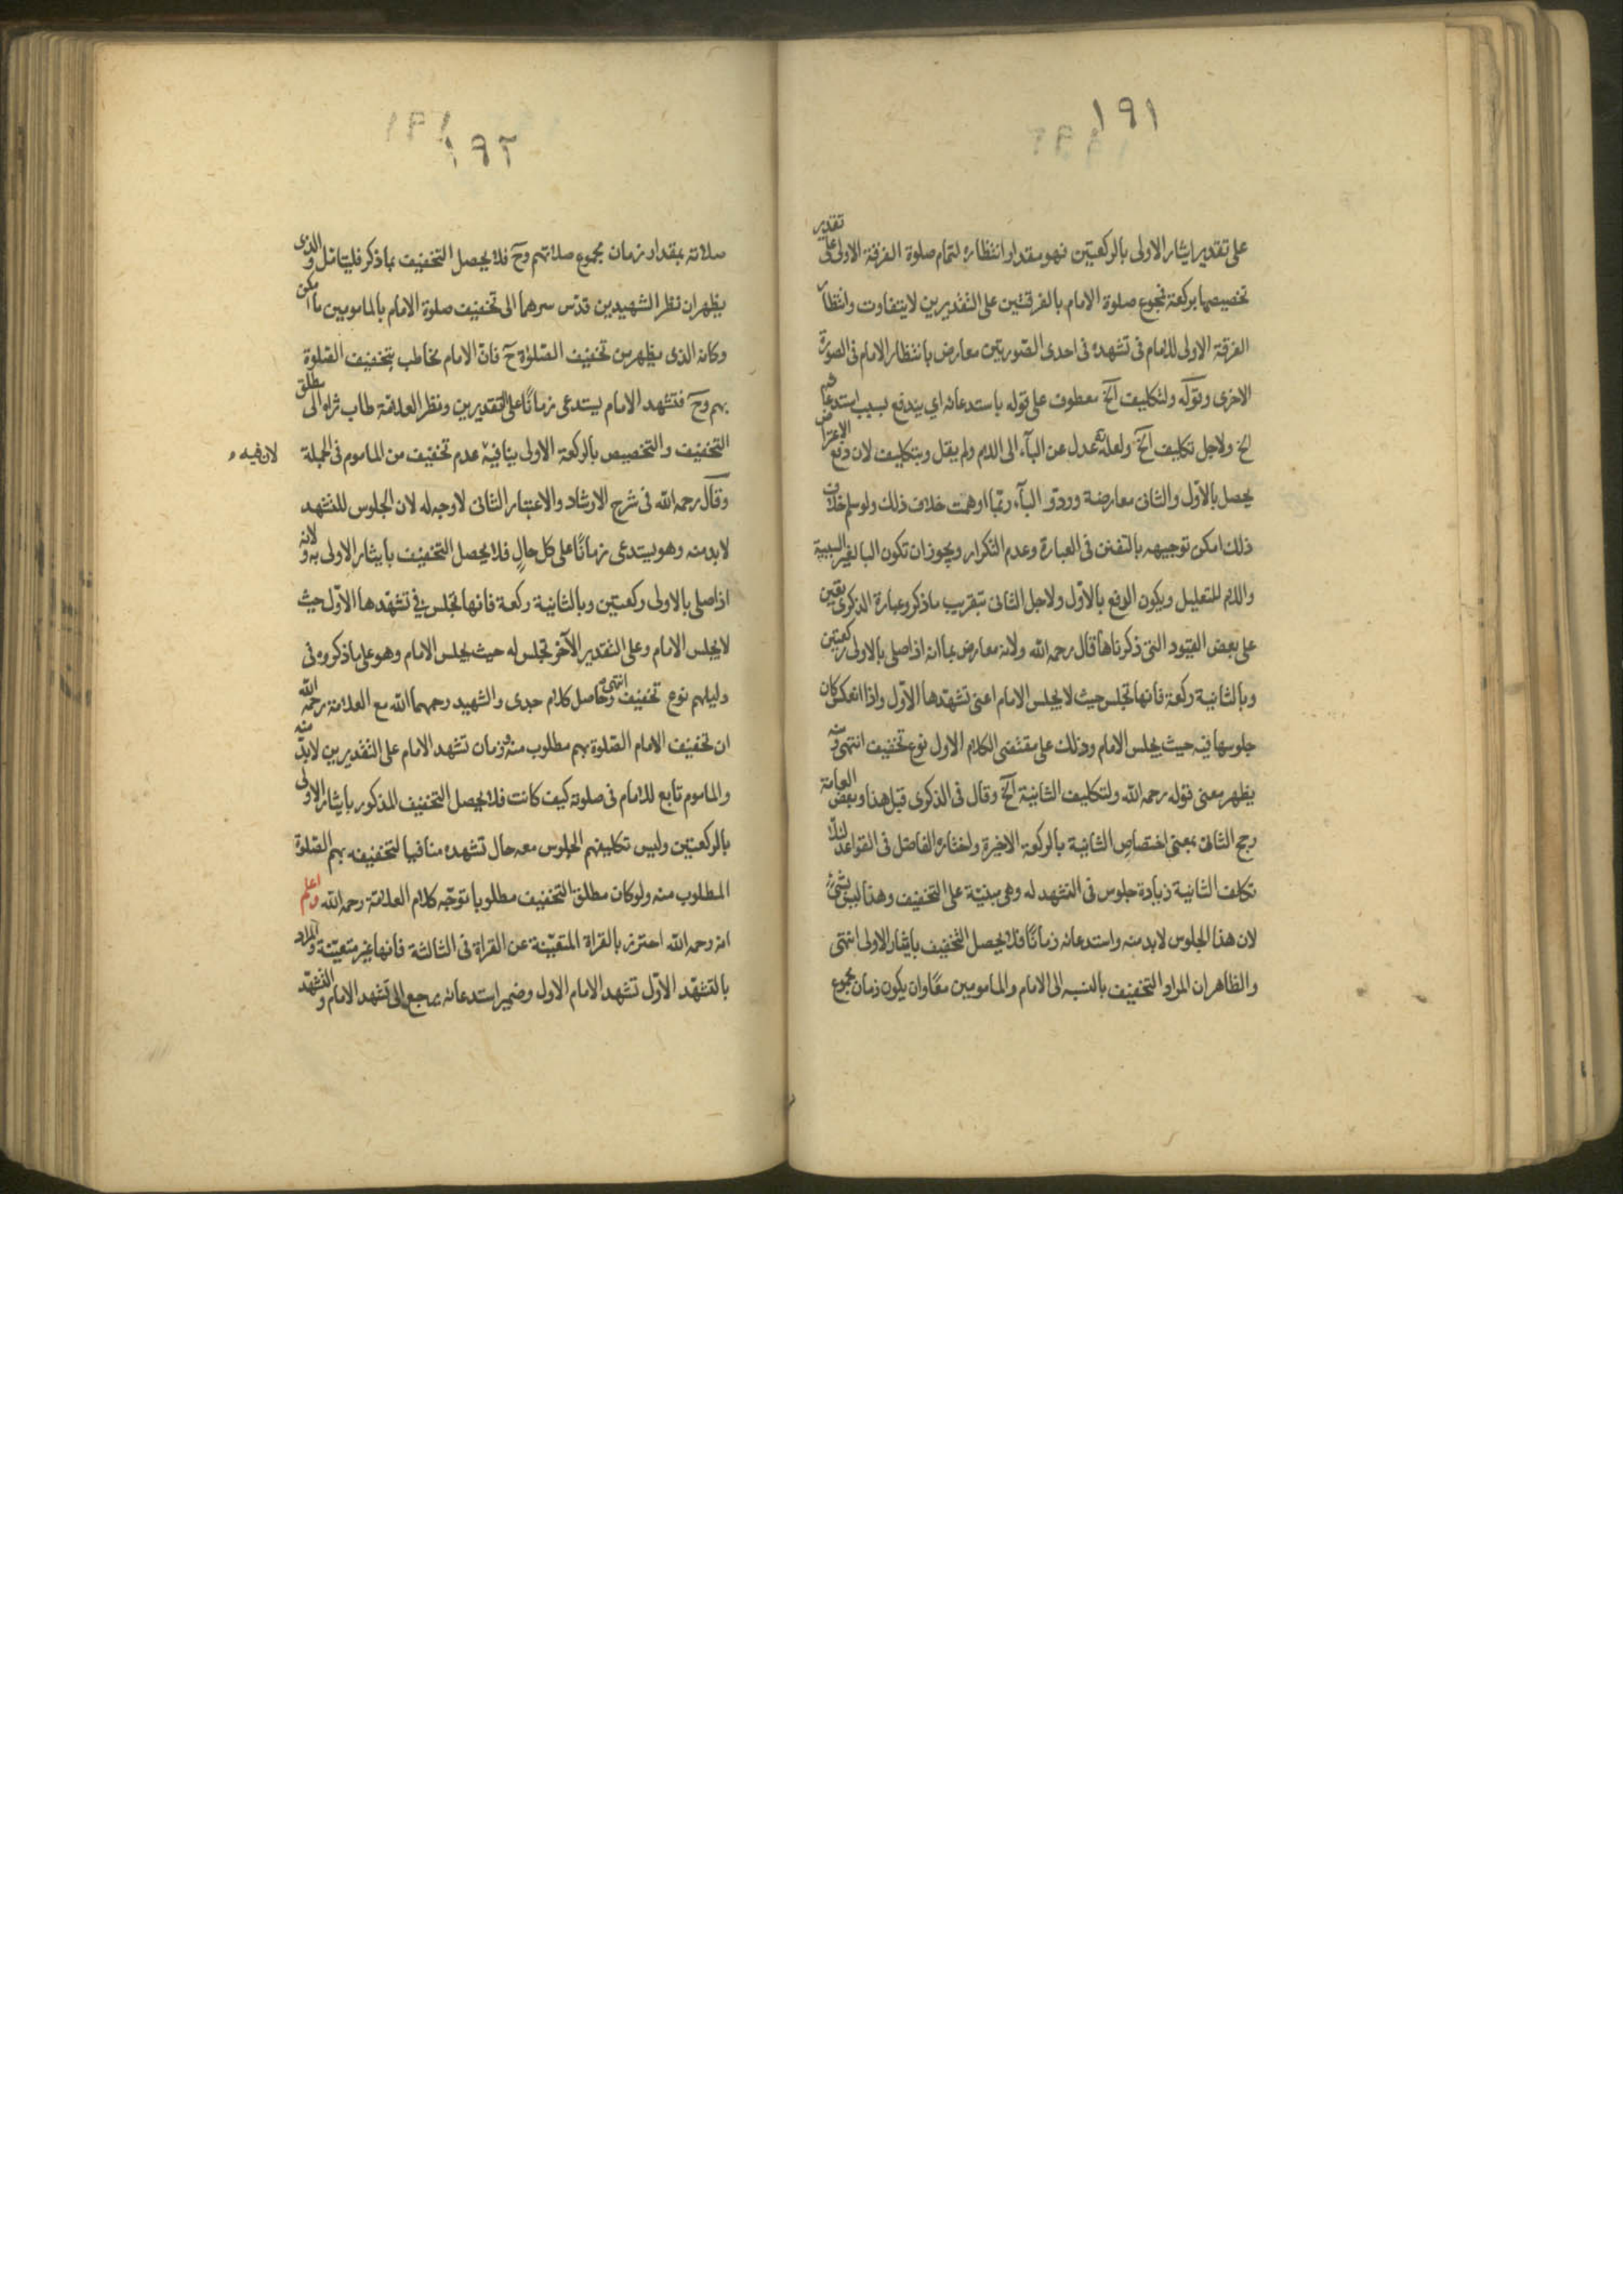 ١٩١
على تقدير ايثار الاولى بالركعتين فهو مقدار انتظاره لتمام صلوة الفرقة الاولى على تقدير
تخصيصها بركعة فمجموع صلوة الامام بالفرقتين على التقديرين لا يتفاوت وانتظار
الفرقة الاولى للامام فى تشهده فى احدى الصورتين معارض بانتظار الامام فى الصورة
الاخرى وقوله ولتكليف الخ معطوف على قوله باستدعائه اي يندفع بسبب استدعائهم
الخ ولاجل تكليف الخ ولعله عدل عن الباء الى اللام ولم يقل وبتكليف لان دفع الاعتراض
يحصل بالاول والثانى معارضة وردّ و الباء ربّما اوهمت خلاف ذلك ولو سلم خلاف
ذلك امكن توجيهه بالتفنن فى العبارة وعدم التكرار ويجوز ان تكون البا لغير السببية
واللام للتعليل ويكون الدفع بالاوّل ولاجل الثانى بتقريب ما ذكر وعبارة الذكرى تعين
على بعض القيود التى ذكرناها قال رحمه الله ولانه معارض بما انه اذا صلى بالاولى ركعتين
وبالثانية ركعة فانها تجلس حيث لا يجلس الامام اعنى تشهّدها الاوّل واذا انعكس كان
جلوسها فيه حيث يجلس الامام وذلك على مقتضى الكلام الاول نوع تخفيف انتهى ومنه
يظهر معنى قوله رحمه الله ولتكليف الثانية الخ وقال فى الذكرى قبل هذا وبعض العامة
رجح الثانى بمعنى اختصاص الثانية بالركعة الاخيرة واختاره الفاضل فى القواعد لئلّا
تكلف الثانية زيادة جلوس فى التشهد له وهى مبنيّة على التخفيف وهذا ليس بشئ
لان هذا الجلوس لابد منه واستدعائه زمانًا فلا يحصل التخفيف بايثار الاولى انتهى
والظاهر ان المراد التخفيف بالنسبه الى الامام والمامومين معًا وان يكون زمان مجموع
١٩٢
صلاته بمقدار زمان مجموع صلاتهم وح فلا يحصل التخفيف بما ذكر فليتامّل والذى
يظهر ان نظر الشهيدين قدّس سرهما الى تخفيف صلوة الامام بالمامومين ما امكن
وكانه الذى يظهر من تخفيف الصّلوة ح فانّ الامام مخاطب بتخفيف الصّلوة
بهم وح فتشهد الامام يستدعى زمانًا على التقديرين ونظر العلامّة طاب ثراه الى مطلق
التخفيف والتخصيص بالركعة الاولى ينافيه عدم تخفيف من الماموم فى الجملة
لان فيه
وقال رحمه الله فى شرح الارشاد والاعتبار الثانى لا وجه له لان الجلوس للتشهد
لابد منه وهو يستدعى زمانًا على كل حالٍ فلا يحصل التخفيف بايثار الاولى به ولانه
اذا صلى بالاولى ركعتين وبالثانية ركعة فانها تجلس فى تشهّدها الاوّل حيث
لا يجلس الامام وعلى التقدير الآخر تجلس له حيث يجلس الامام وهو على ما ذكروه فى
دليلهم نوع تخفيف انتهى وحاصل كلام جدى والشهيد رحمهما الله مع العلامة رحمه الله
ان تخفيف الامام الصّلوة بهم مطلوب منه وزمان تشهد الامام على التقديرين لابدّ منه
والماموم تابع للامام فى صلوته كيف كانت فلا يحصل التخفيف المذكور بايثار الاولى
بالركعتين وليس تكليفهم الجلوس معه حال تشهده منافيا لتخفيفه بهم الصّلوة
المطلوب منه ولو كان مطلق التخفيف مطلوبا توجّه كلام العلامّة رحمه الله واعلم
انه رحمه الله احترز بالقراة المتعيّنة عن القراة فى الثالثة فانها غير متعيّنة والمراد
بالتشهّد الاوّل تشهد الامام الاول وضمير استدعائه يرجع الى تشهد الامام والتشهّد